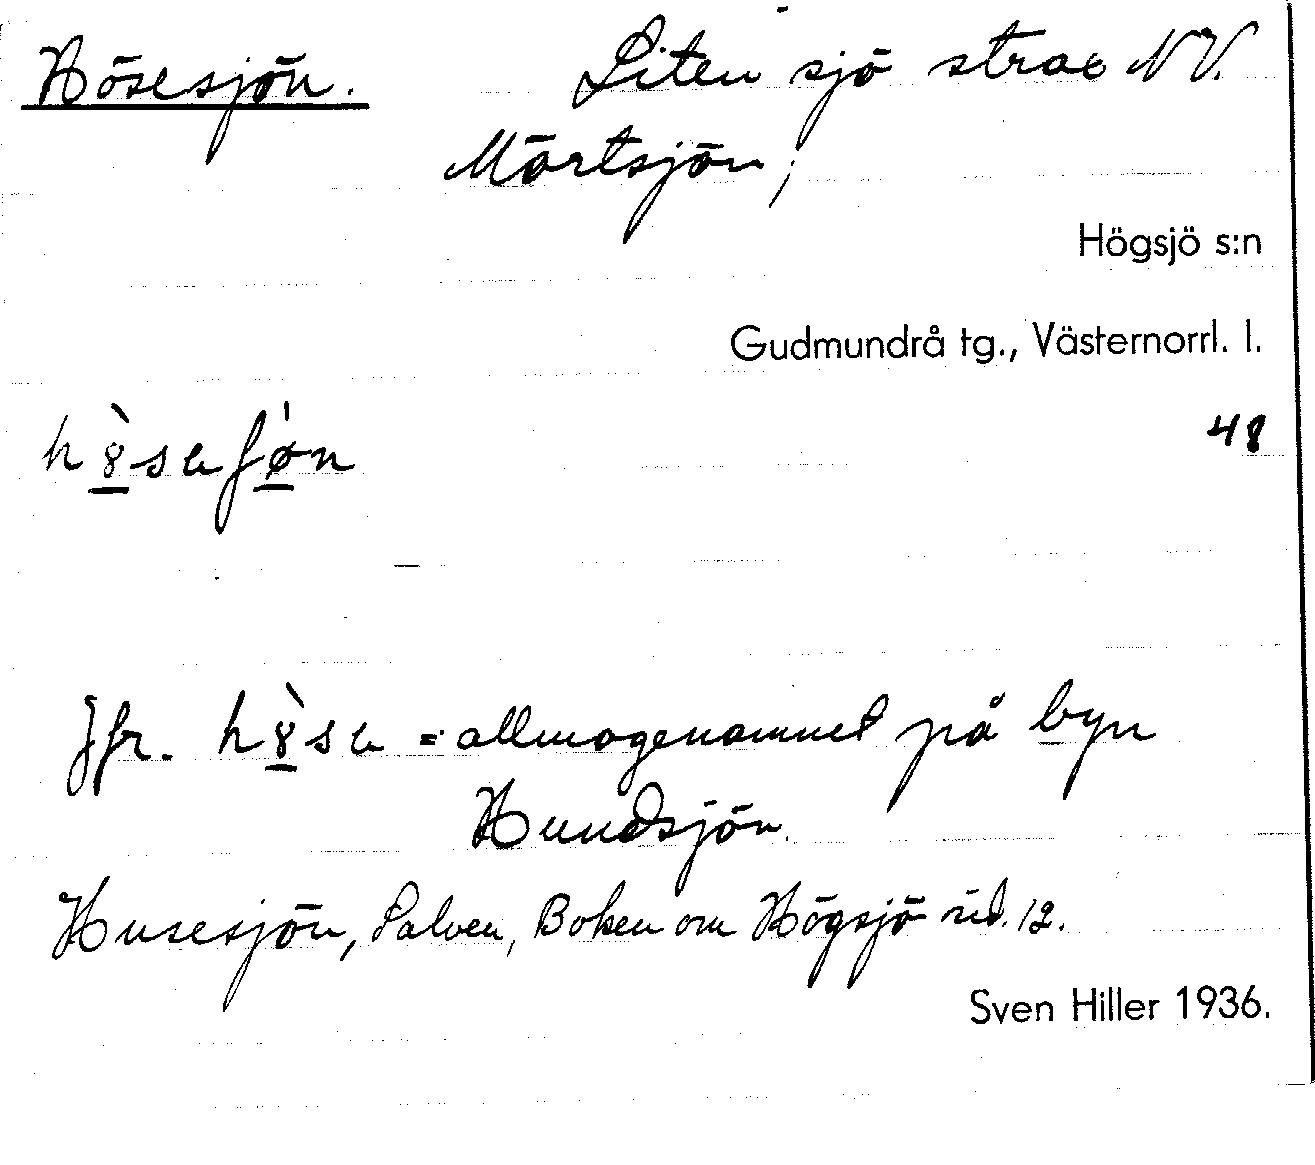 Hösesjön. Liten sjö strax NV.
Mörtsjön;
Högsjö s:n
Gudmundrå tg., Västernorrl. l.
48
Jfr. = allmogenamnet på byn
Hundsjön.
Husesjön, Salven, Boken om Högsjö sid. 12.
Sven Hiller 1936.